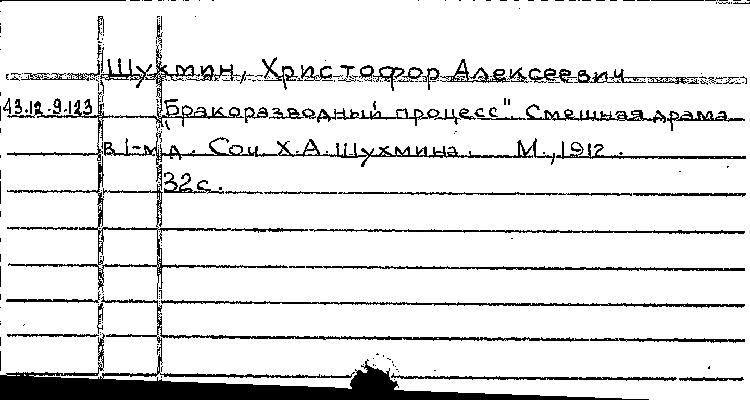 Шухмин, Христофор Алексеевич.
43.12.9.123 "Бракоразводный процесс". Смешная драма
в 1-м д. Соч. Х.А. Шухмина. М., 1912.
32 с.